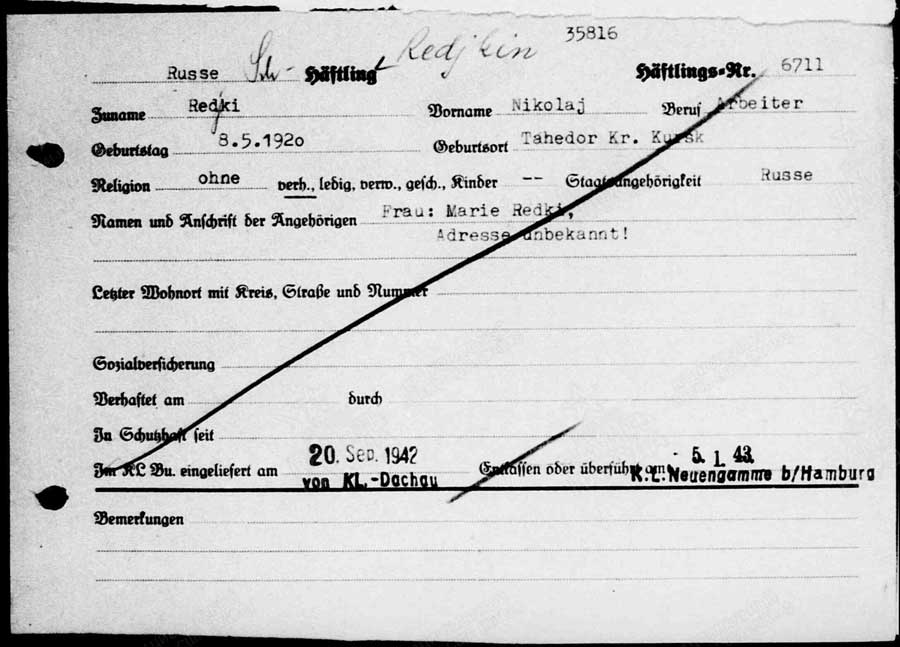 35816
Redjkin
Russe Sch- Häftling Häftlings-Nr. 6711
Zuname Redjki Vorname Nikolaj Beruf Arbeiter
Geburtstag 8.5.1920 Geburtsort Tahedor Kr. Kursk
Religion ohne verh., ledig, verw., gesch., Kinder -- Staatsangehörigkeit Russe
Namen und Anschrift der Angehörigen Frau: Marie Redki,
Adresse unbekannt!
Letzter Wohnort mit Kreis, Straße und Nummer
Sozialversicherung
Verhaftet am durch
In Schutzhaft seit
Im KL Bu. eingeliefert am 20. Sep. 1942 Entlassen oder überführt am - 5. 1. 43
von KL.-Dachau K.L. Neuengamme b/Hamburg
Bemerkungen